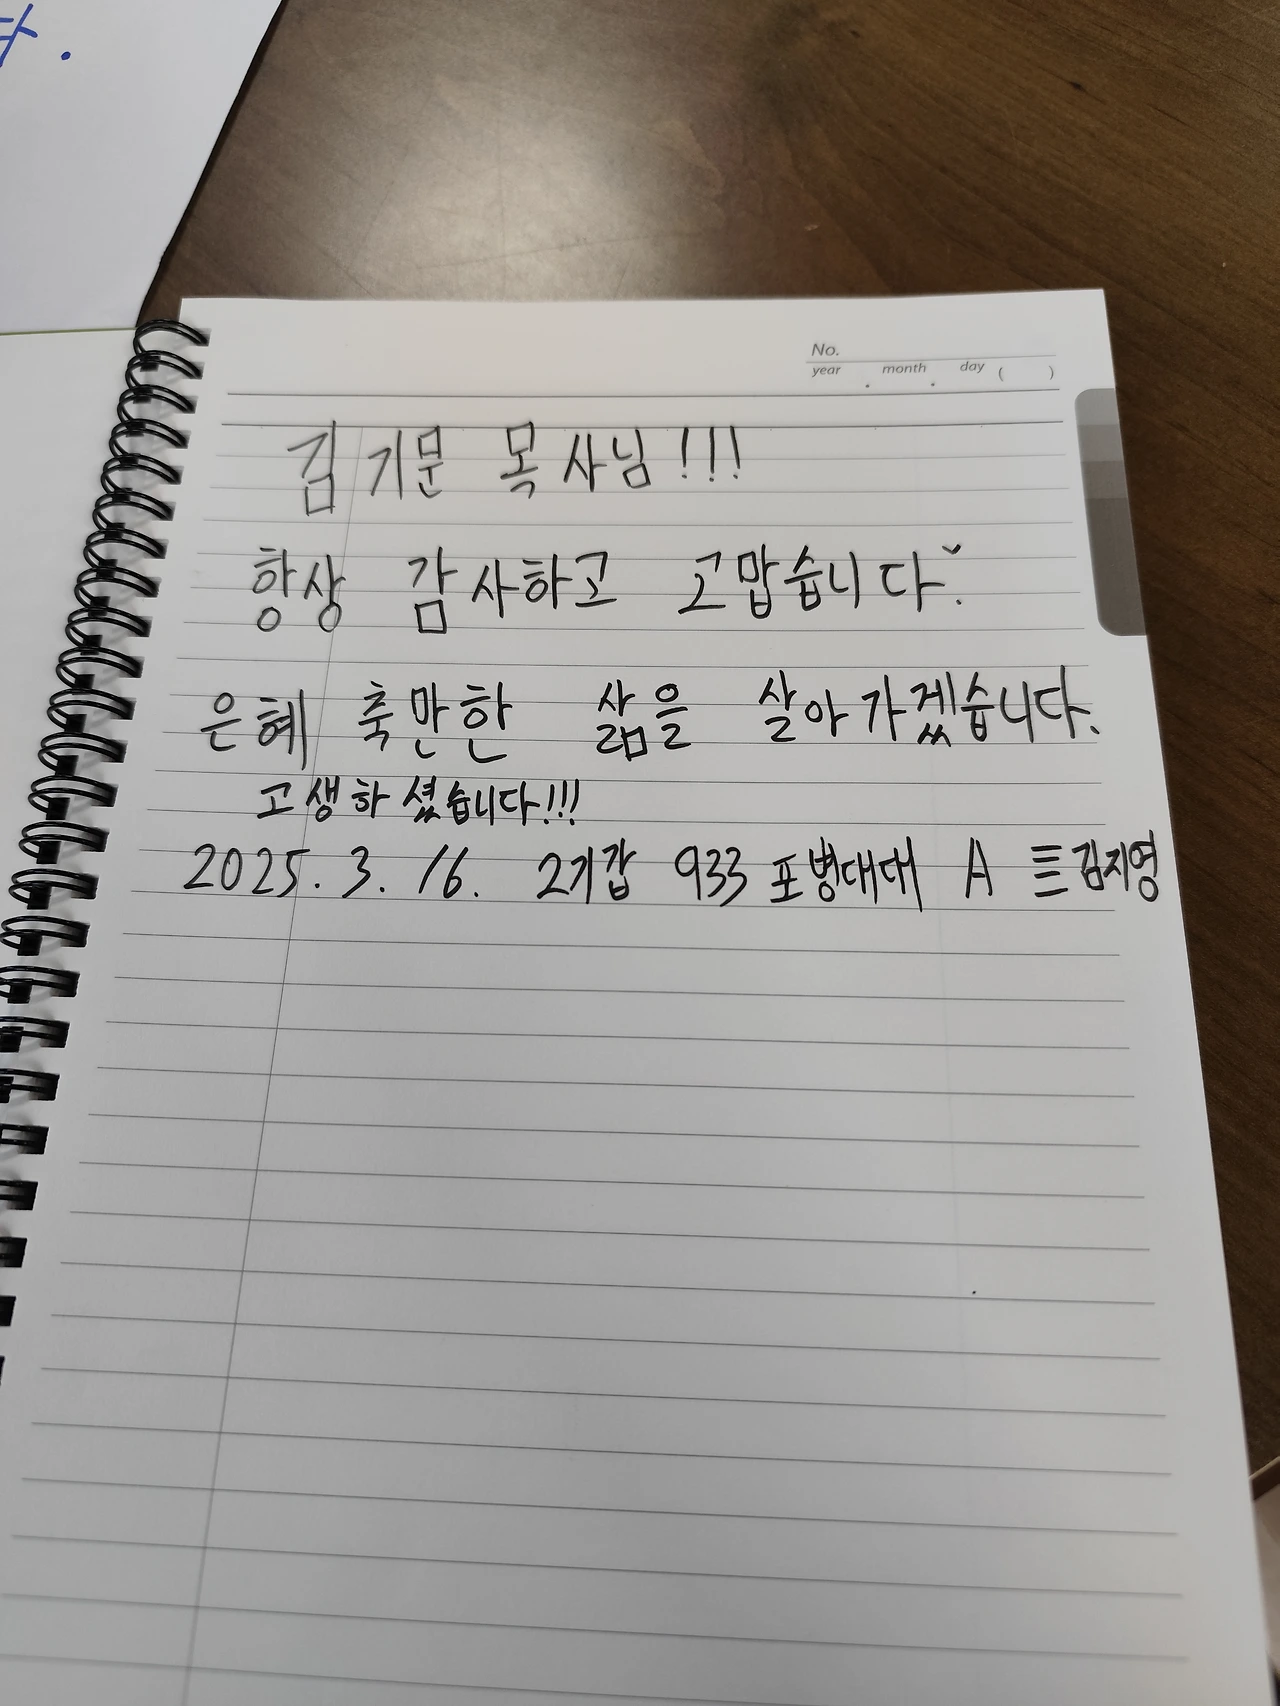 다.
No.
year . month . day ( )
김기문 목사님!!!
항상 감사하고 고맙습니다.
은혜 축만한 삶을 살아가겠습니다.
고생하셨습니다!!!
2025. 3. 16. 2기갑 933 포병대대 A 김지영